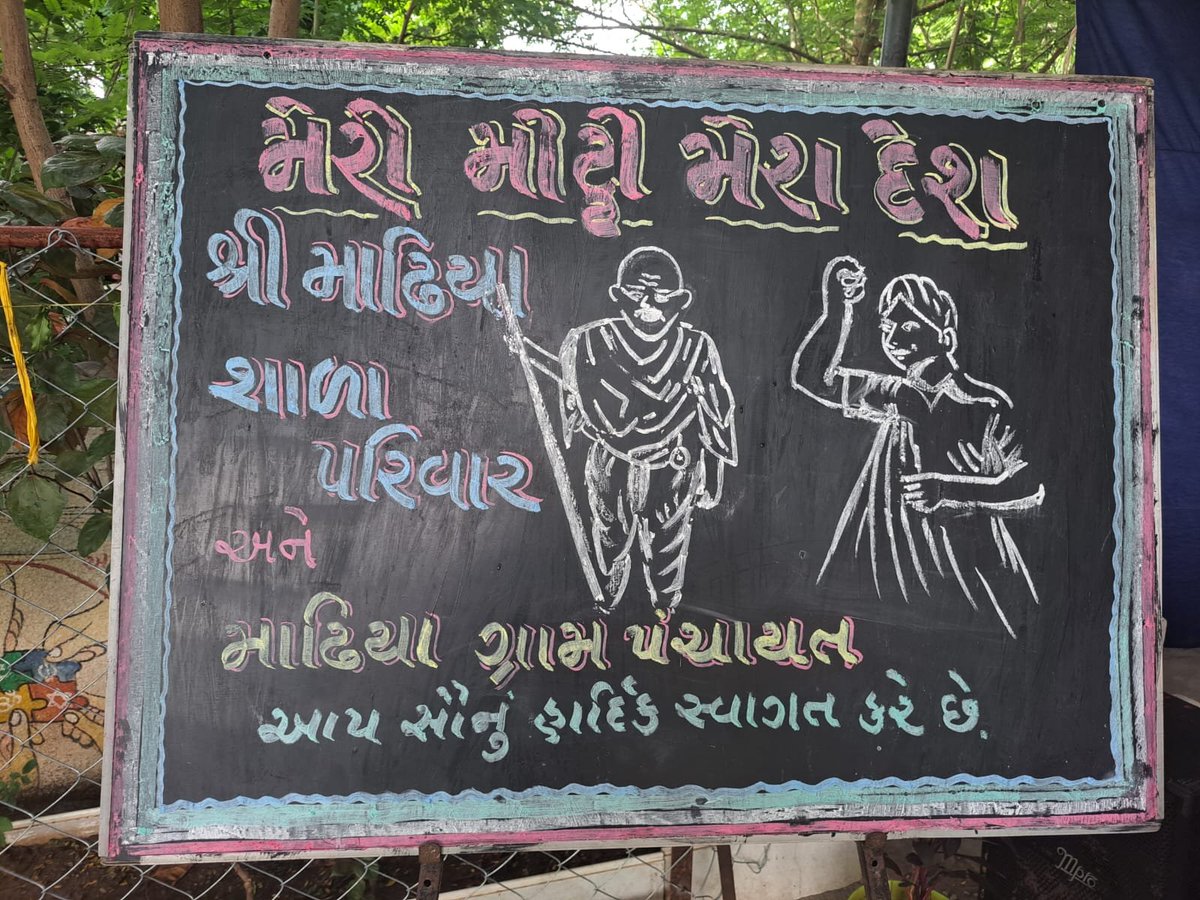 મેરી માટ્ટી મેરા દેશ
શ્રી માઢિયા
શાળા
પરિવાર
અને
માઢિયા ગ્રામ પંચાયત
આપ સૌનું હાર્દિક સ્વાગત કરે છે.
Mpro